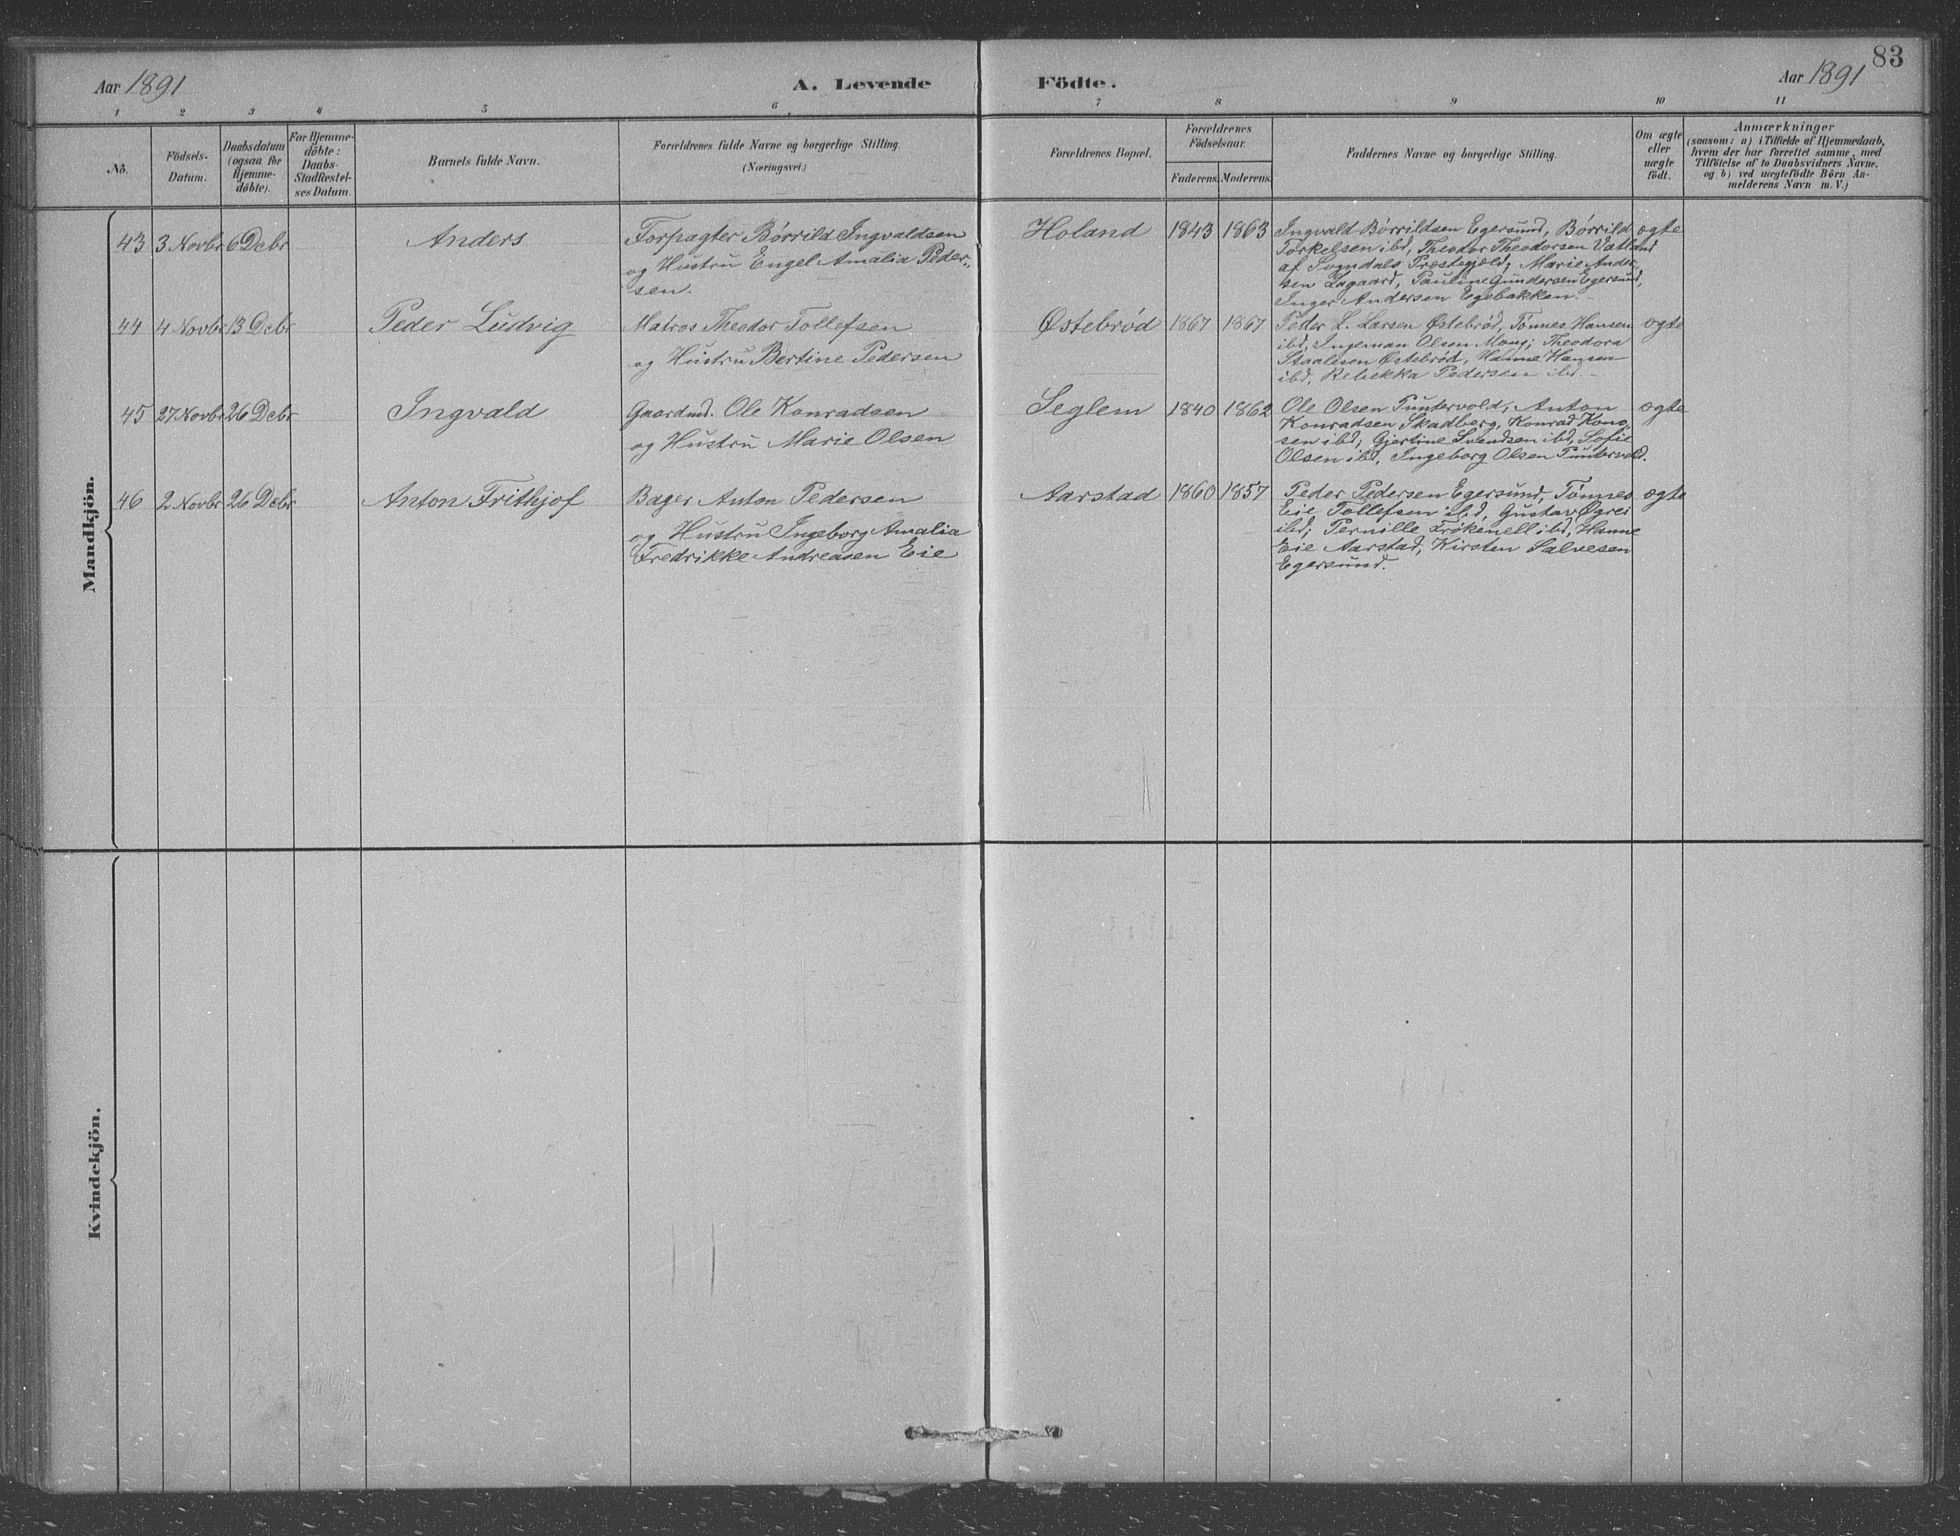 83
Aar 1891 A. Levende Födte. Aar 1891
1 2 3 4 5 6 7 8 9 10 11
No.
Födsels-
Datum.
Daabsdatum
(ogsaa for
Hjemme-
döbte).
For Hjemme-
döbte:
Daabs-
Stadfæstel-
ses Datum.
Barnets fulde Navn.
Forældrenes fulde Navne og borgerlige Stilling.
(Næringsvei.)
Forældrenes Bopæl.
Forældrenes
Födselsaar.
Faderens. Moderens.
Faddernes Navne og borgerlige Stilling.
Om ægte
eller
uægte
födt.
Anmærkninger
(saasom: a) i Tilfælde af Hjemmedaab,
hvem der har forrettet samme, med
Tilföielse af to Daabsvidners Navne.
og b) ved uægtefödte Börn An-
melderens Navn m. V.)
Mandkjön.
43 3 Novbr 6 Debr Anders
Forpagter Børrild Ingvaldsen
og Hustru Engel Amalia Peder-
sen.
Holand 1843 1863
Ingvald Børrildsen Egersund, Børrild
Torkelsen ibd, Theodor Theodorsen Vatland
af Sogndals Præstegjæld, Marie Ander-
sen Lagaard, Pauline Gundersen Egersund,
Inger Andersen Egebakken.
ægte
44 4 Novbr 13 Debr Peder Ludvig
Matros Theodor Tollefsen
og Hustru Bertine Pedersen
Østebrød 1867 1867
Peder L. Larsen Østebrød, Tønnes Hansen
ibd, Ingeman Olsen Mong, Theodora
Staalesen Østebrød, Hanne Hansen
ibd, Rebekka Pedersen ibd.
ægte
45 27 Novbr 26 Debr Ingvald
Gaardmd. Ole Konradsen
og Hustru Marie Olsen
Seglem 1840 1862
Ole Olsen Puntervold, Anton
Konradsen Skadberg, Konrad
sen ibd, Gjertine Svendsen ibd, Sofie
Olsen ibd, Ingeborg Olsen Puntervold.
ægte
46 2 Novbr 26 Debr Anton Frithjof
Bager Anton Pedersen
og Hustru Ingeborg Amalia
Fredrikke Andreasen Eie
Aarstad 1860 1857
Peder Pedersen Egersund, Tønnes
Eie Tollefsen ibd, Gustav
ibd; Pernille ibd, Hanne
Eie Aarstad, Kirsten Salvesen
Egersund.
ægte
Kvindekjön.